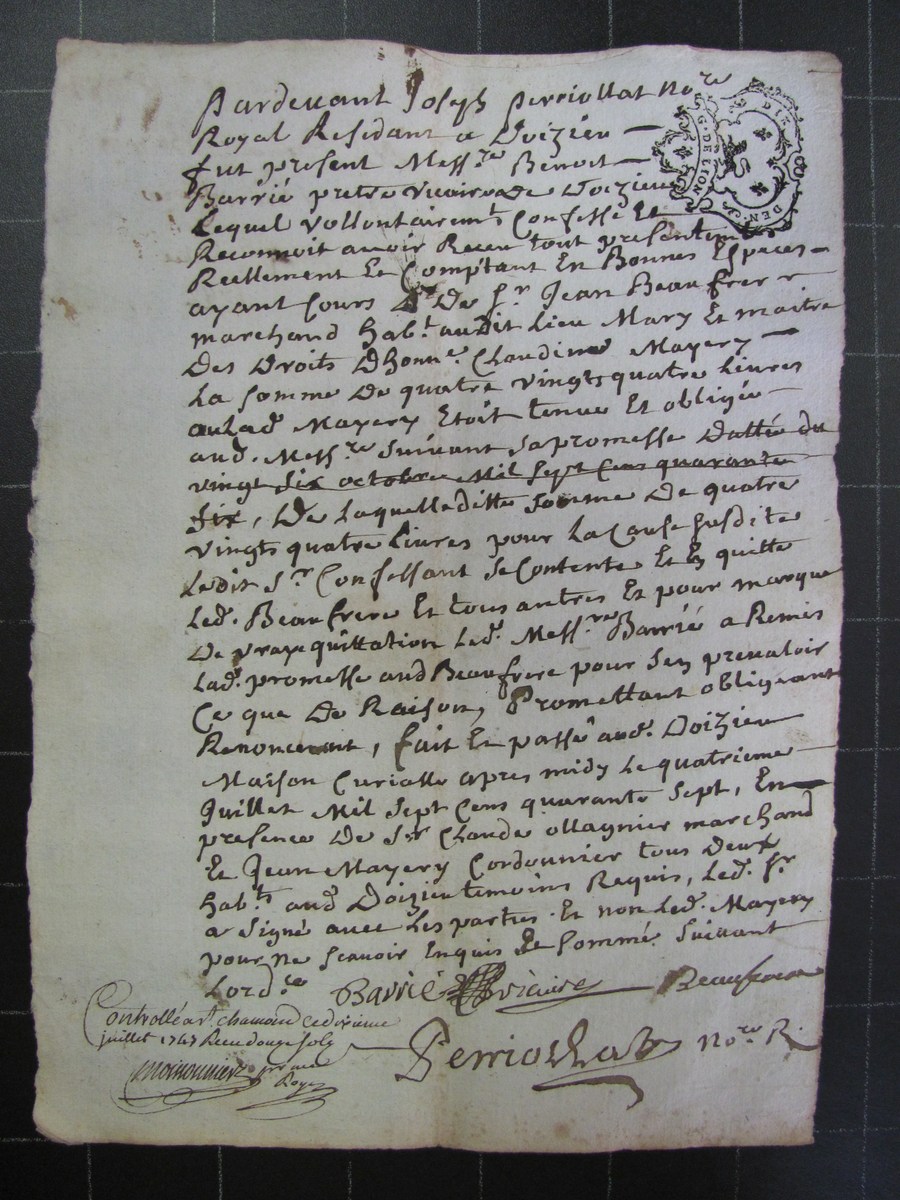 Pardevant Joseph Perriollat no.re
Royal Residant a Doizieu
fut present Mess.re Benoit
Barrié pretre vicaire de Doizieu
Lequel vollontairem.t Confesse Et
Reconnoit avoir Receu tout presentem
Reellement Et Comptant En Bonnes Especes
ayant Cours De S.r Jean Beaufrere
marchand hab.t audit Lieu Mary Et maitre
Des Droits Dhonn.e Claudine Mayery
La somme De quatre vingts quatre Livres
a Lad. Mayery Etoit tenue Et obligée
aud. Mess.re suivant sa promesse Dattée du
vingt six octobre Mil sept Cens quarante
six, De Laquelleditte somme De quatre
vingts quatre Livres pour La Cause susdite
Ledit S.r Confessant se Contente Et En quitte
Led. Beaufrere Et tous autres Et pour marque
De vraye quittation Led. Mess.re Barrié a Remis
Lad. promesse aud Beaufrere pour sen prevaloir
Ce que De Raison, Promettant obligeant
Renonceant, fait Et passé aud. Doizieu
Maison Curialle apres midy Le quatrieme
Juillet Mil sept Cens quarante sept, En
presence De S.r Claude ollagnier marchand
Et Jean Mayery Cordonnier tous Deux
hab.ts aud Doizieu temoins Requis, Led. S.r
a signé avec Les parties. Et non Led. Mayery
pour ne scavoir Enquis Et sommé suivant
Lord.ce Barrié vicaire Beaufrere
Controllé a S.t chamond Le dixieme
juillet 1747 Receu douze sols
Perriollat no.re R.
G. DE LION